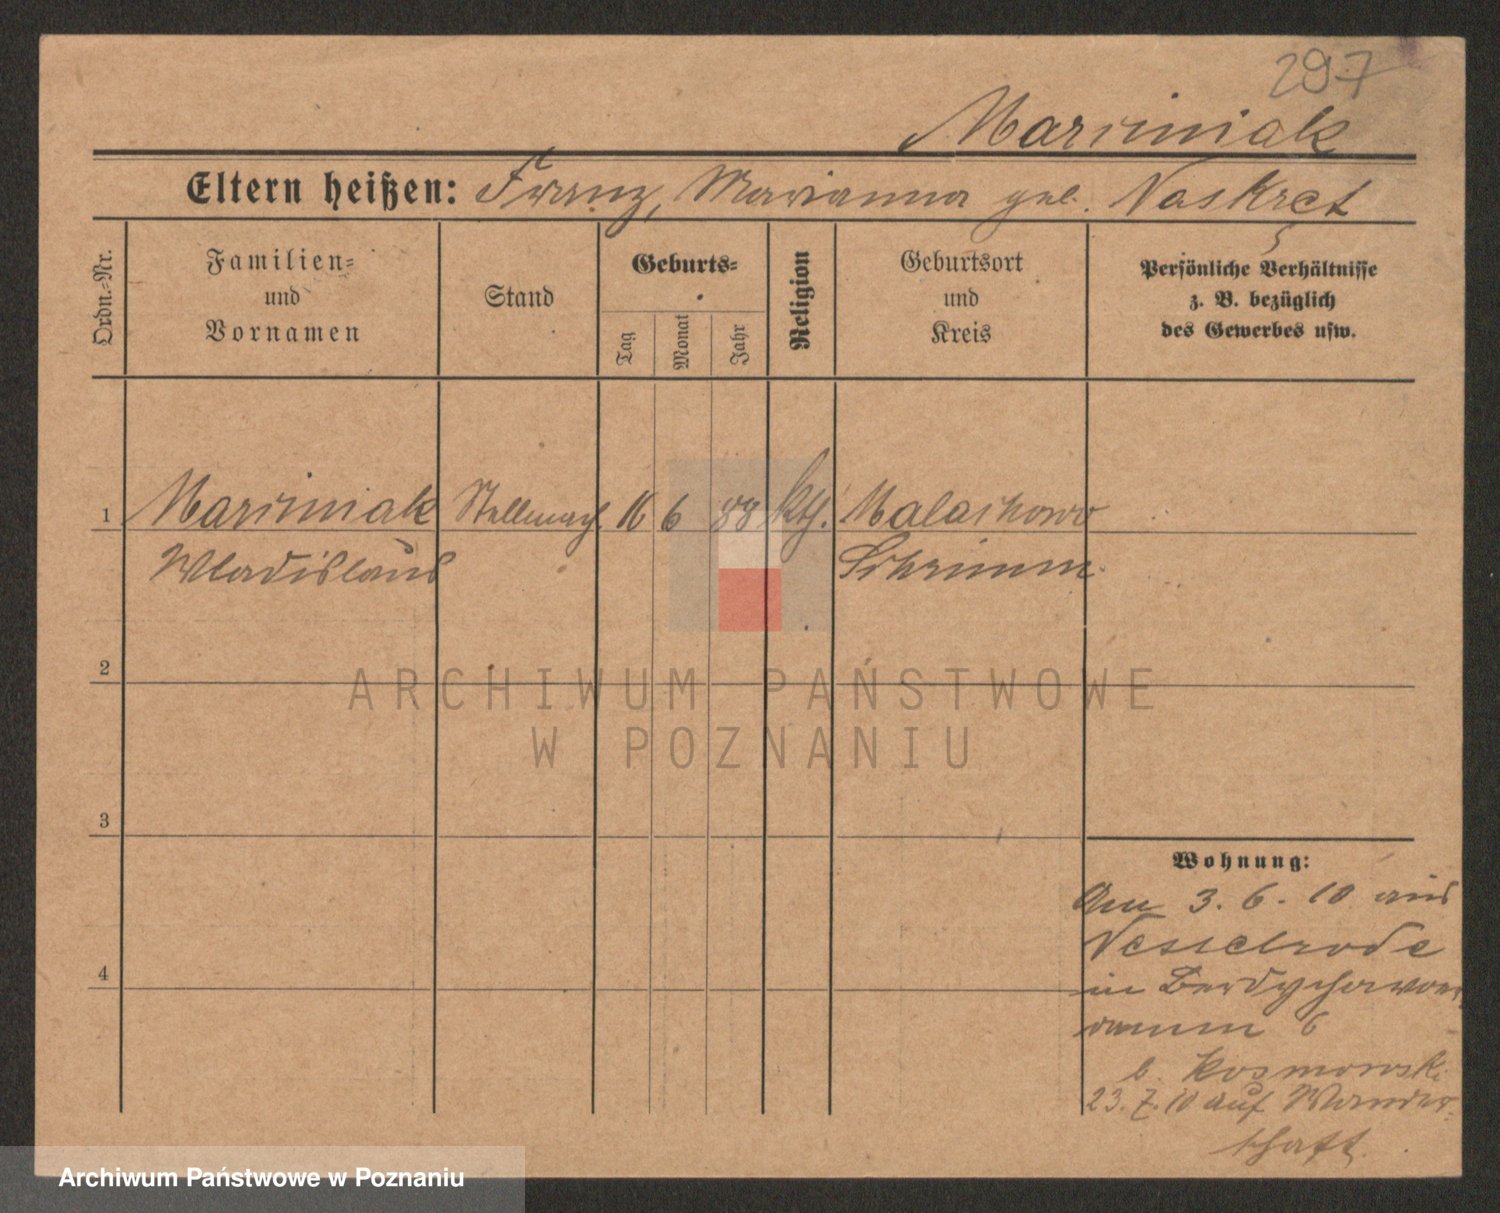 297
Marciniak
Eltern heißen: Franz, Marianna geb. Naskręt
Ordn.-Nr.
Familien- und Vornamen
Stand
Geburts-
Tag
Monat
Jahr
Religion
Geburtsort und Kreis
Persönliche Verhältnisse z. B. bezüglich des Gewerbes usw.
1 Marciniak Stellmach. 16 6 88 kth. Malachowo
Wladislaus Schrimm
2
3
4
Wohnung:
Am 3. 6. 10 aus
Nesselrode
in Berdychower
damm 6
b. Kosmowski
23. 7. 10 auf Wander-
schaft.
ARCHIWUM PAŃSTWOWE
W POZNANIU
Archiwum Państwowe w Poznaniu